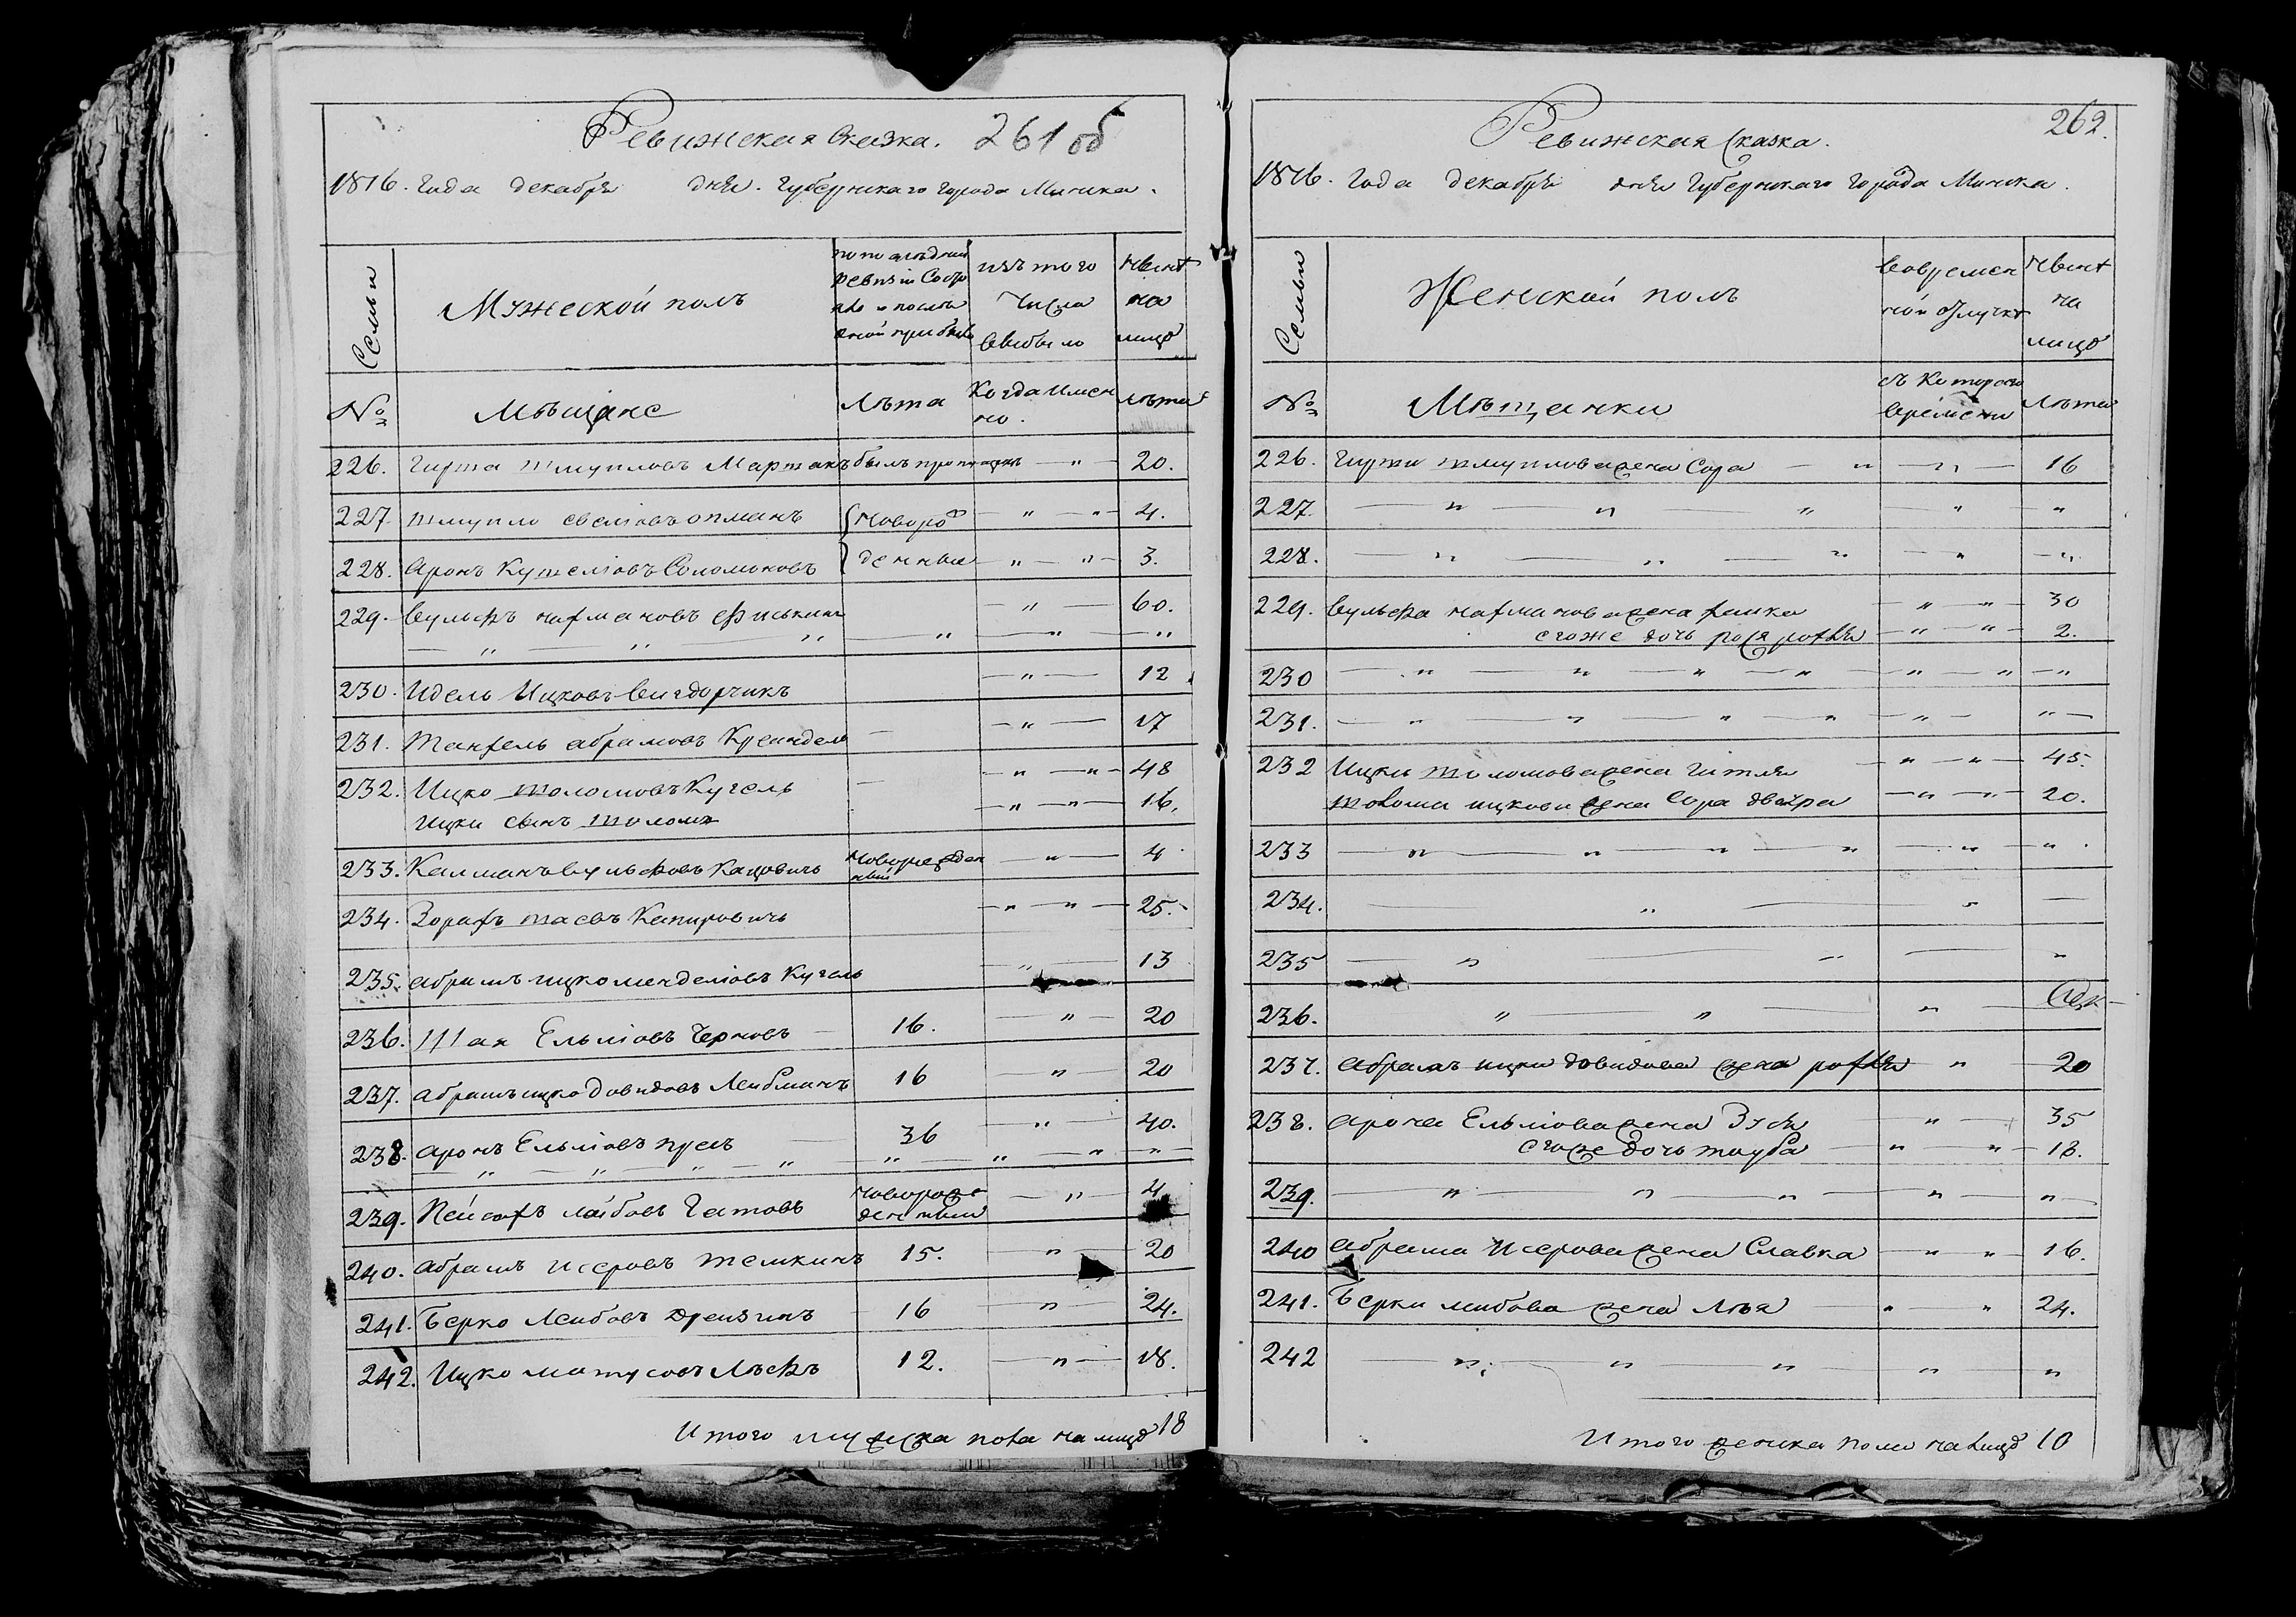 Ревижская Сказка. 261 об
1816. Года декабря дня. Губернскаго города Минска.
Семьи
Мужеской полъ
по последней ревизіи Состо
яло и после
оной прибыло
изъ того
Числа
выбыло
ныне
на
лицо
№
Мѣщане
Лѣта
Когда Имен
но.
лѣта
226. Гирша Шмуиловъ был пропищенъ — " — 20.
227. Шмуило новорож — " — " 4.
228. Аронъ Соломоновъ денные — " — " — 3.
229. Вульфъ Нахмановъ — " — 60.
— " — " — " — " — " — "
230. Идель Ицковъ Вигдорчикъ — " — 12
231. Шахель абрамовъ Креиндель — — " — 17
232. Ицко Шоломовъ Кугель — — " — " — 48
Ицки сынъ Шоломъ — " — " — 16.
233. Калманъ вульфовъ Кацовичъ новорожден
ный — " — 4
234. Зорахъ Шаевъ — " — " — 25.
235. абрамъ ицкомендліовъ Кугель — " — 13
236. Шая Ельіовъ Черновъ — 16. — " — 20
237. абрамъ ицко довидовъ Лейбманъ 16 " 20
238. аронъ Ельіовъ — 36 — " — 40.
" — " — " — " — " — " — " — " —
239. Пейсахъ лейбовъ новорож
денный — " — 4
240. абрамъ Исеровъ Шемкинъ 15. — " — 20
241. Берко Лейбовъ Дреизинъ 16 — " — 24.
242. Ицко матусовъ 12. — " — 18.
Итого мужеска пола налицо 18
262.
Ревижская Сказка.
1816. Года декабря дня Губернскаго города Минска.
Семьи
Женской полъ
вовремен
ной отлучке
ныне
на
лицо
№
Мѣщанки
съ Котораго
времени
Лѣта
226. Гирши шмуилова жена Сора — " — " — 16
227. — " — " — " — " "
228. — " — " — " — " — "
229. Вульфа нахманова жена — " — " — 30
егоже дочь рося рохля — " — " — 2.
230 — " — " — " — " — " — " — "
231. — " — " — " — " — " — " —
232 Ицки шоломова жена Гитля — " — " — 45.
шолома ицкова жена Сора двейра — " — " — 20.
233 — " — " — " — " — " — "
234. — " — " —
235 — " — " — "
236. " — " — " —
237. абрамъ ицки довидова жена рохля " 20
238. арона Ельіова жена Зуся " — 35
егоже дочь тауба — " — " — 18.
239. — " — " — " — " — " —
240 абрама Исерова жена Славка — " — " — 16.
241. Берки лейбова жена Лѣя " — " — 24.
242 — " — " — " — " — "
Итого женска пола налицо 10